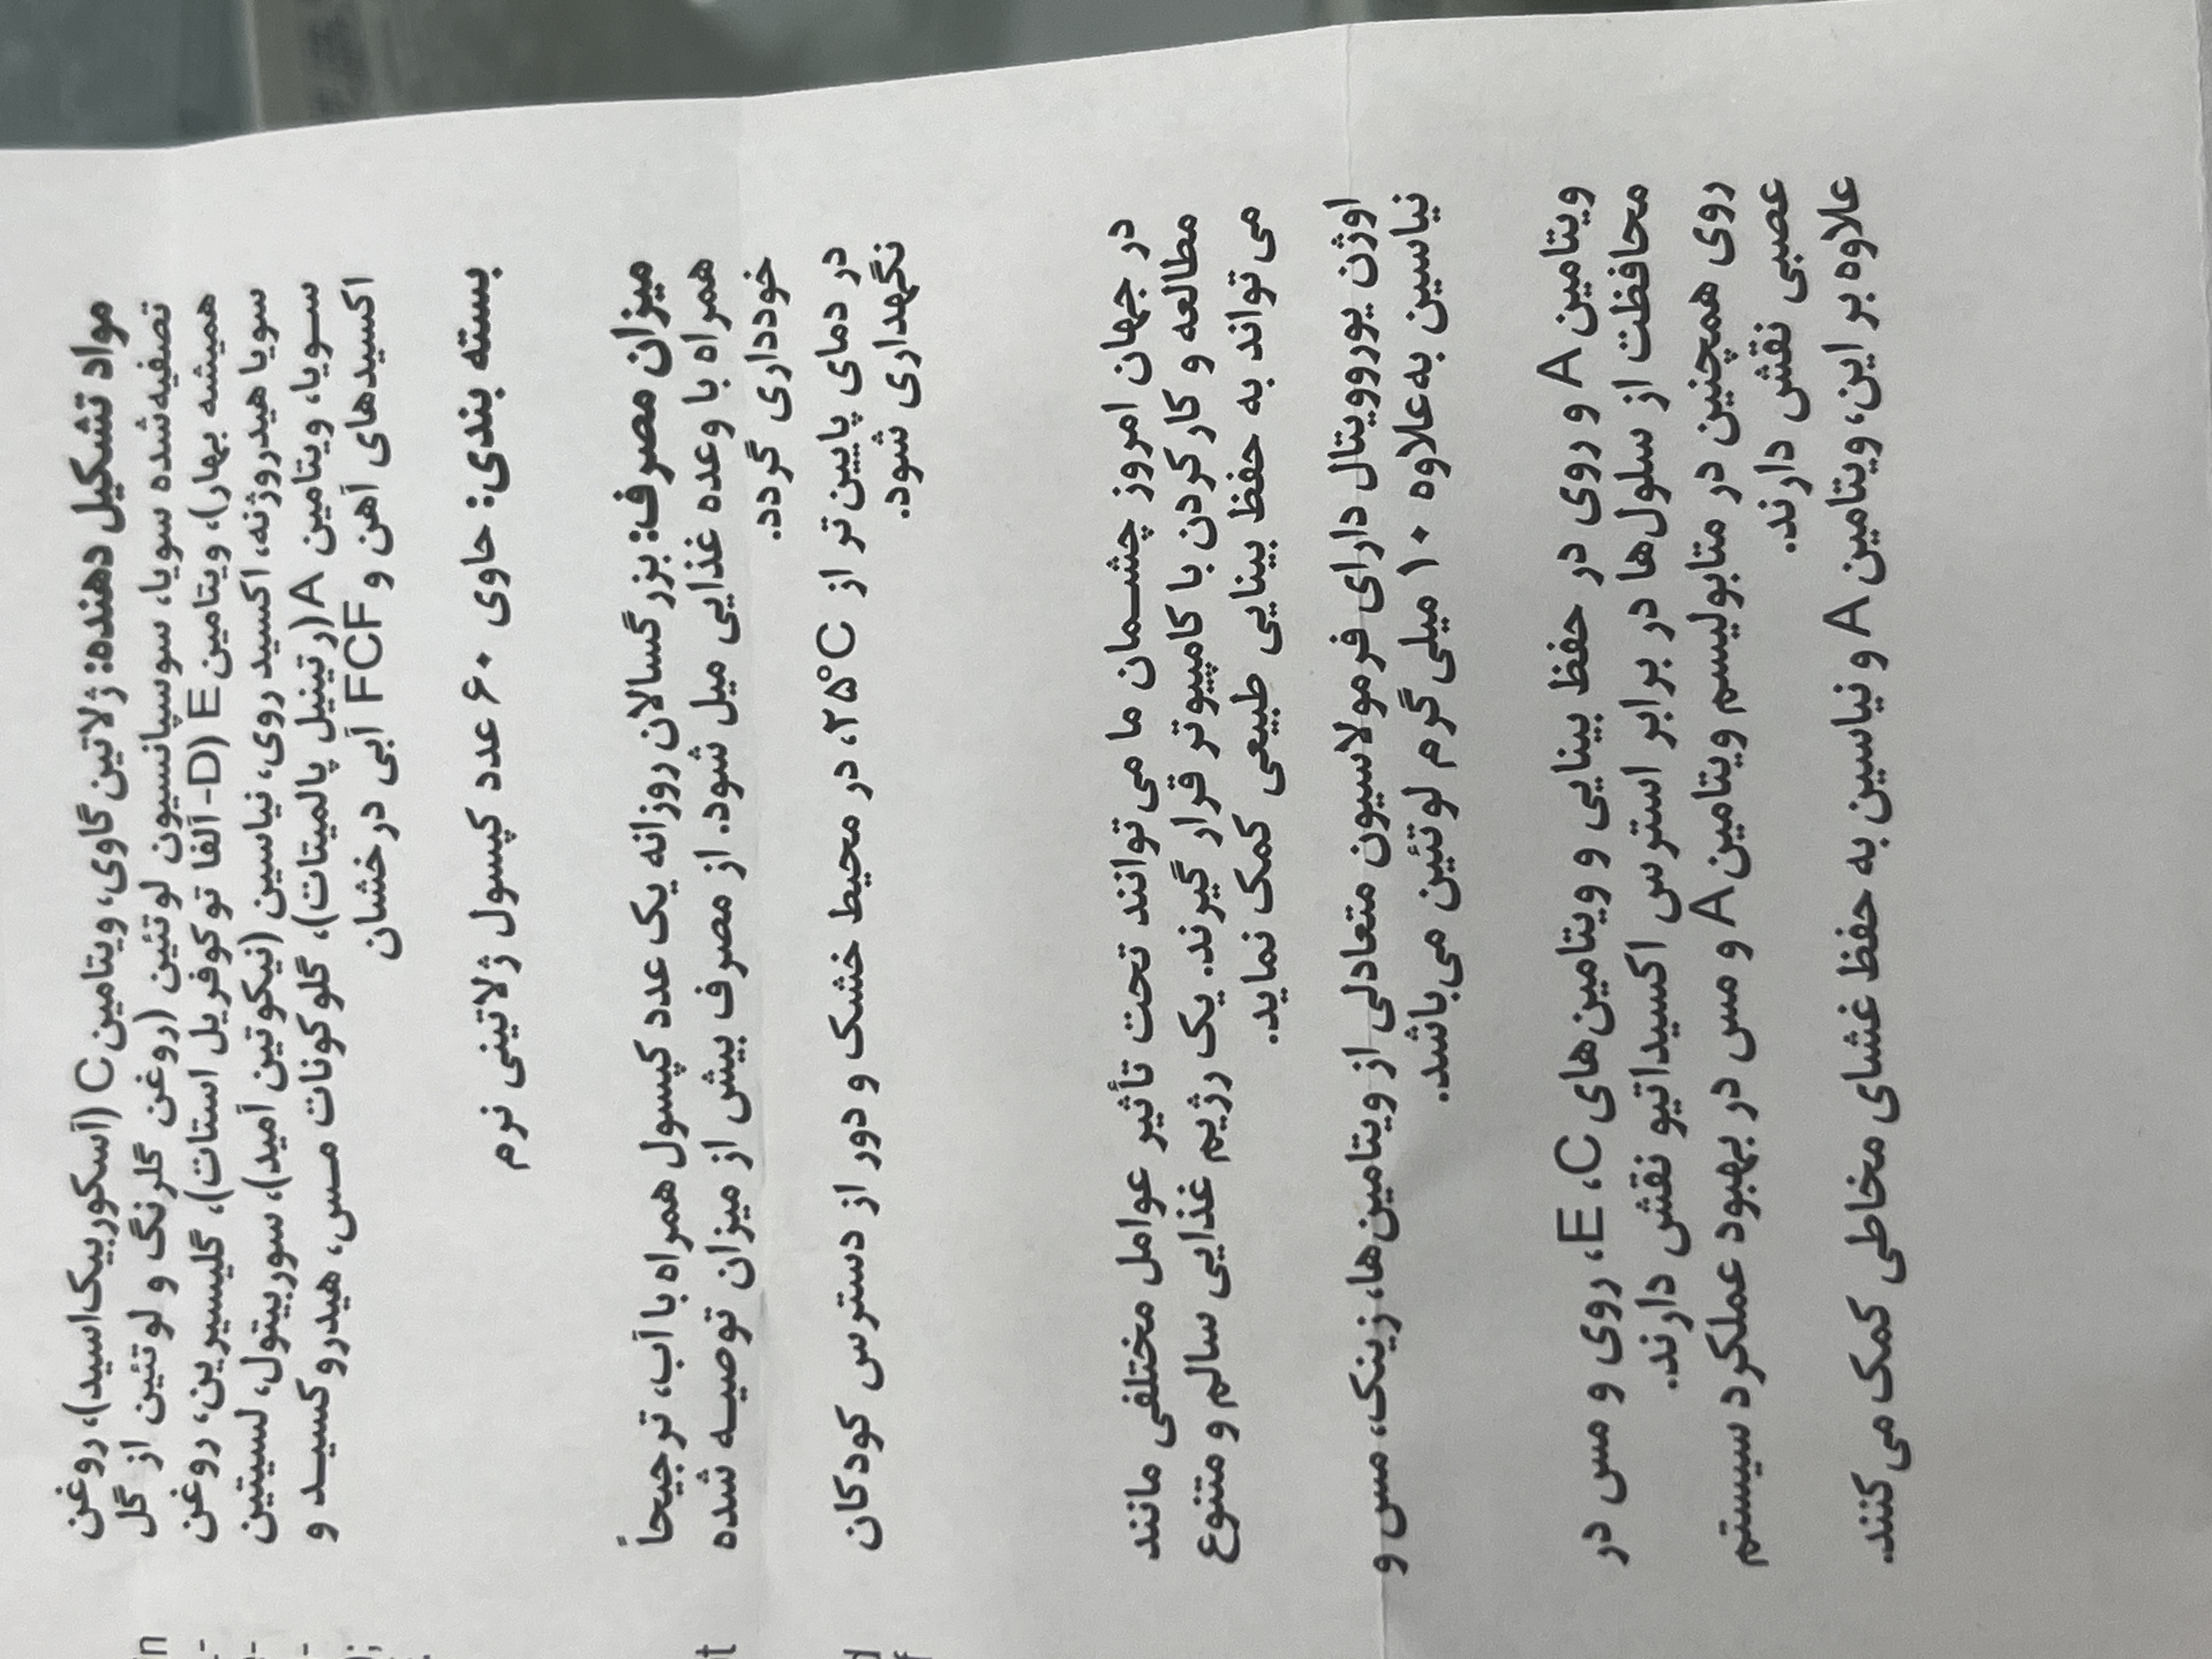 مواد تشکیل دهنده: ژلاتین گاوی، ویتامین C (آسکوربیک‌اسید)، روغن
تصفیه‌شده سویا، سوسپانسیون لوتئین (روغن گلرنگ و لوتئین از گل
همیشه بهار)، ویتامین E (D-آلفا توکوفریل استات)، گلیسیرین، روغن
سویا هیدروژنه، اکسید روی، نیاسین (نیکوتین آمید)، سوربیتول، لسیتین
سویا، ویتامین A (رتینیل پالمیتات)، گلوکونات مس، هیدروکسید و
اکسیدهای آهن و FCF آبی درخشان
بسته بندی: حاوی ۶۰ عدد کپسول ژلاتینی نرم
میزان مصرف: بزرگسالان روزانه یک عدد کپسول همراه با آب، ترجیحاً
همراه با وعده غذایی میل شود. از مصرف بیش از میزان توصیه شده
خودداری گردد.
در دمای پایین‌تر از ۲۵°C، در محیط خشک و دور از دسترس کودکان
نگهداری شود.
در جهان امروز چشمان ما می‌توانند تحت تأثیر عوامل مختلفی مانند
مطالعه و کارکردن با کامپیوتر قرار گیرند. یک رژیم غذایی سالم و متنوع
می‌تواند به حفظ بینایی طبیعی کمک نماید.
اوژن یوروویتال دارای فرمولاسیون متعادلی از ویتامین‌ها، زینک، مس و
نیاسین به‌علاوه ۱۰ میلی گرم لوتئین می‌باشد.
ویتامین A و روی در حفظ بینایی و ویتامین‌های E ،C، روی و مس در
محافظت از سلول‌ها در برابر استرس اکسیداتیو نقش دارند.
روی همچنین در متابولیسم ویتامین A و مس در بهبود عملکرد سیستم
عصبی نقش دارند.
علاوه بر این، ویتامین A و نیاسین به حفظ غشای مخاطی کمک می‌کنند.